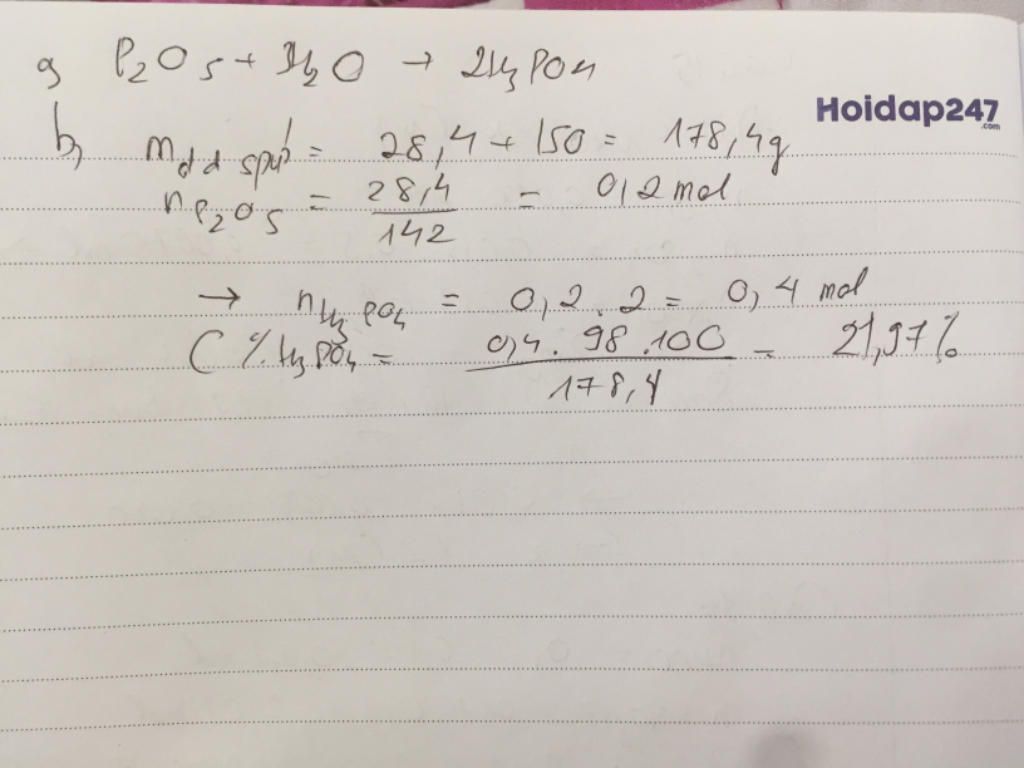 a, P2O5 + 3H2O → 2H3PO4
Hoidap247
.com
b, mdd spứ = 28,4 + 150 = 178,4g
nP2O5 = 28,4/142 = 0,2 mol
→ nH3PO4 = 0,2.2 = 0,4 mol
C%H3PO4 = 0,4.98.100/178,4 = 21,97%